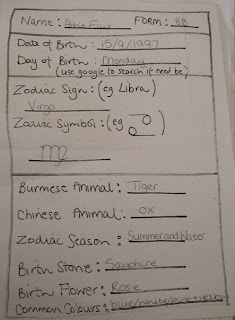 Name: Abbie Form: 8B
Date of Birth: 15/9/1997
Day of Birth: Monday
(use google to search if need be)
Zodiac Sign: (eg Libra)
Virgo
Zodiac Symbol: (eg ♎)
♍
Burmese Animal: Tiger
Chinese Animal: OX
Zodiac Season: Summer and Water
Birth Stone: Sapphire
Birth Flower: Rose
Common Colours: blue/white/